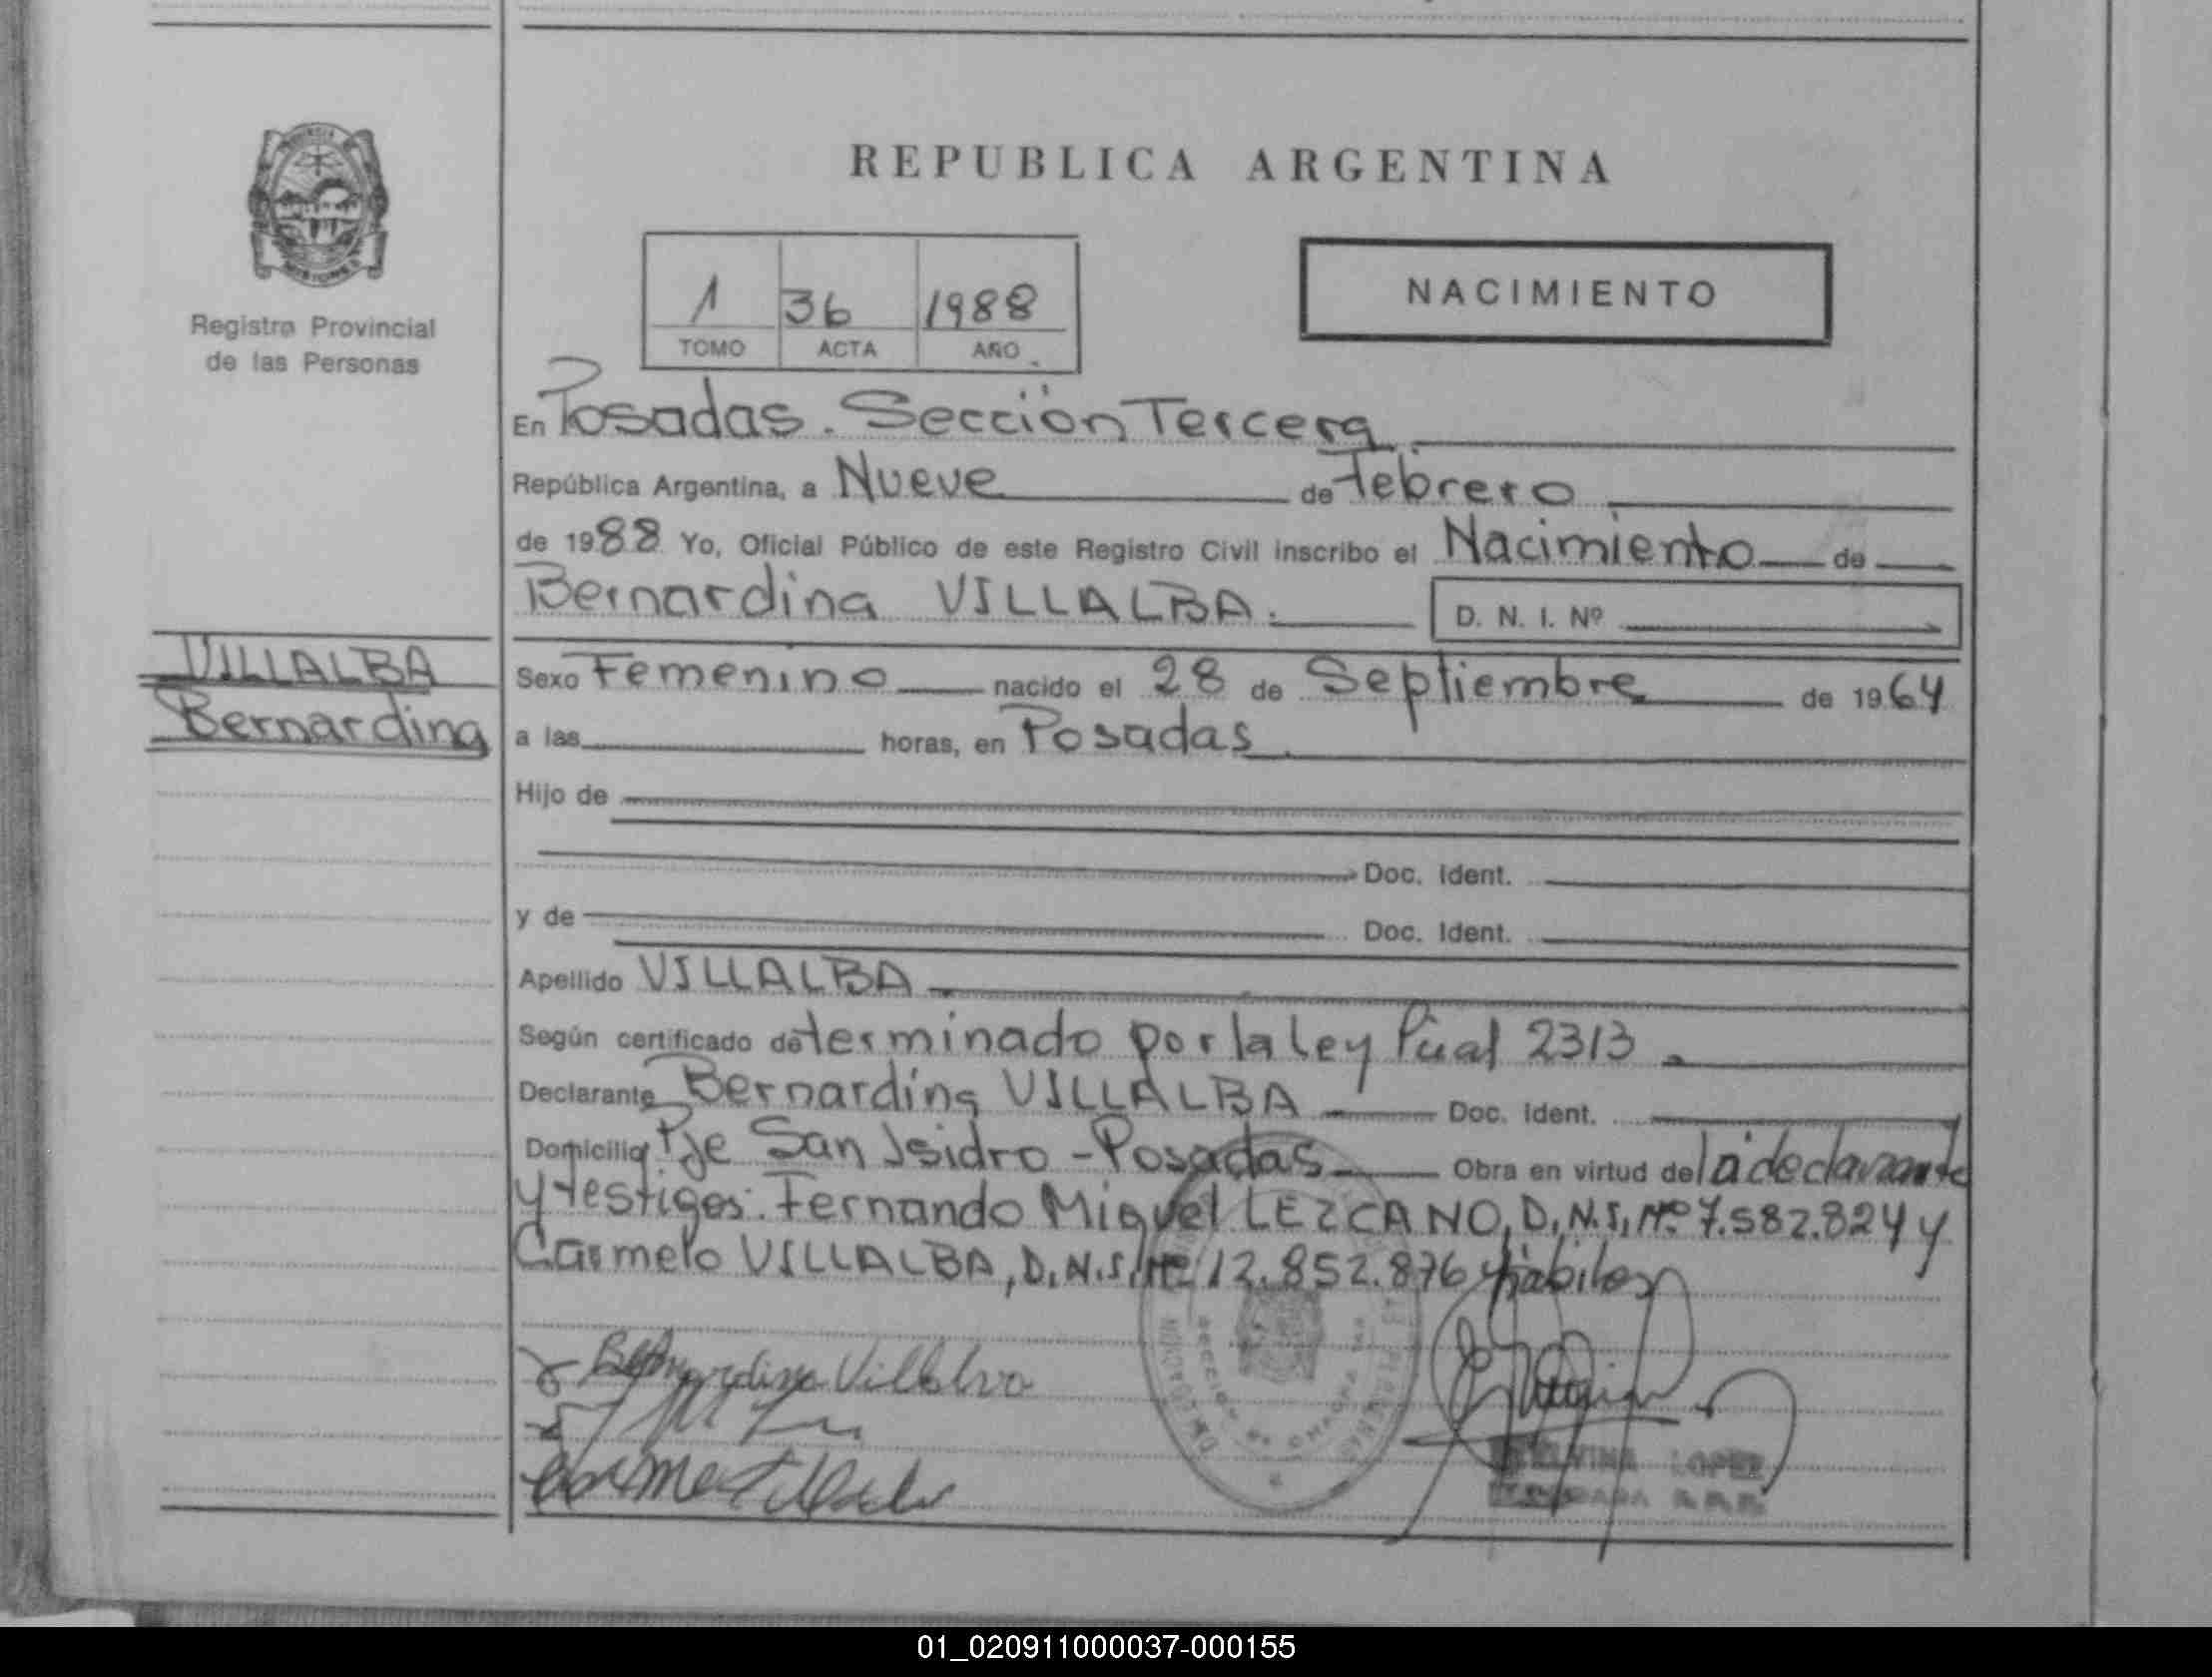 REPUBLICA ARGENTINA
MISIONES
Registro Provincial
de las Personas
1 36 1988
TOMO ACTA AÑO
NACIMIENTO
En Posadas. Sección Tercera
República Argentina, a Nueve de Febrero
de 1988 Yo, Oficial Público de este Registro Civil inscribo el Nacimiento de
Bernardina VILLALBA. D. N. I. Nº
VILLALBA
Bernardina
Sexo Femenino nacido el 28 de Septiembre de 1964
a las horas, en Posadas
Hijo de
Doc. Ident.
y de Doc. Ident.
Apellido VILLALBA
Según certificado determinado por la ley 2313
Declarante Bernardina VILLALBA Doc. Ident.
Domicilio Pje San Isidro - Posadas Obra en virtud de la declarante
y testigos: Fernando Miguel LEZCANO, D.N.I. Nº 7.582.824 y
Carmelo VILLALBA, D.N.I. Nº 12.852.876 hábiles
Bernardina Villalva
LOPEZ
01_020911000037-000155